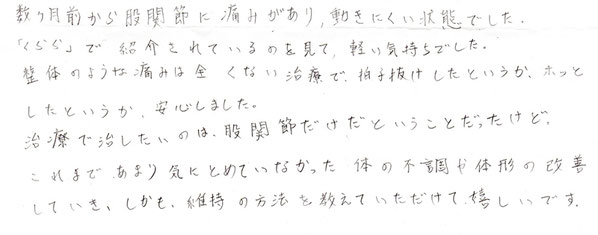 数ヶ月前から股関節に痛みがあり、動きにくい状態でした。
「くらら」で紹介されているのを見て、軽い気持ちでした。
整体のような痛みは全くない治療で、拍子抜けしたというか、ホッと
したというか、安心しました。
治療で治したいのは、股関節だけだということだったけど、
これまであまり気にとめていなかった体の不調や体形の改善
していき、しかも、維持の方法を教えていただけて嬉しいです。